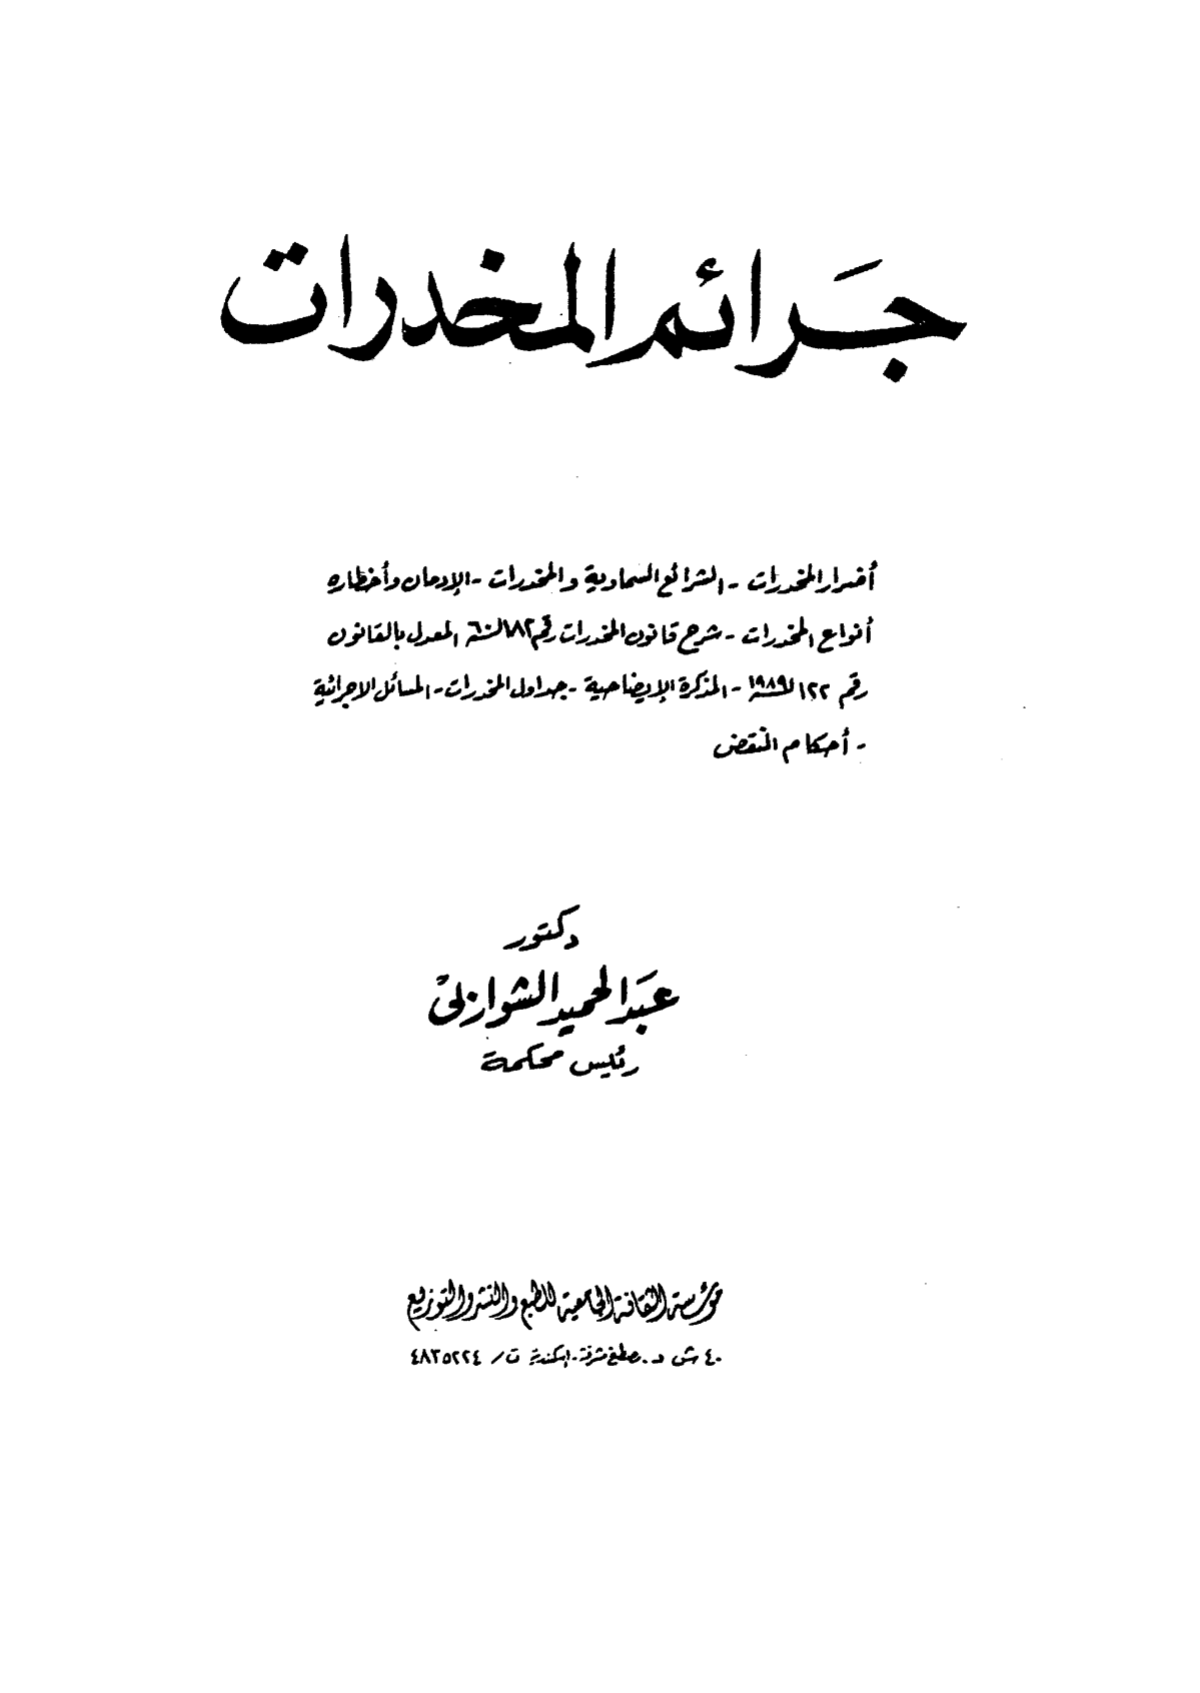 جَرائم المخدرات
أضرار المخدرات - الشرائع السماوية والمخدرات - الإدمان وأخطاره
أنواع المخدرات - شرح قانون المخدرات رقم ١٨٢ لسنة ٦٠ المعدل بالقانون
رقم ١٢٢ لسنة ١٩٨٩ - المذكرة الإيضاحية - جداول المخدرات - المسائل الاجرائية
- أحكام النقض
دكتور
عبد الحميد الشواربى
رئيس محكمة
مؤسسة الثقافة الجامعية للطبع والنشر والتوزيع
٤٠ ش د. مصطفى مشرفة - اسكندرية ت / ٤٨٣٥٢٢٤